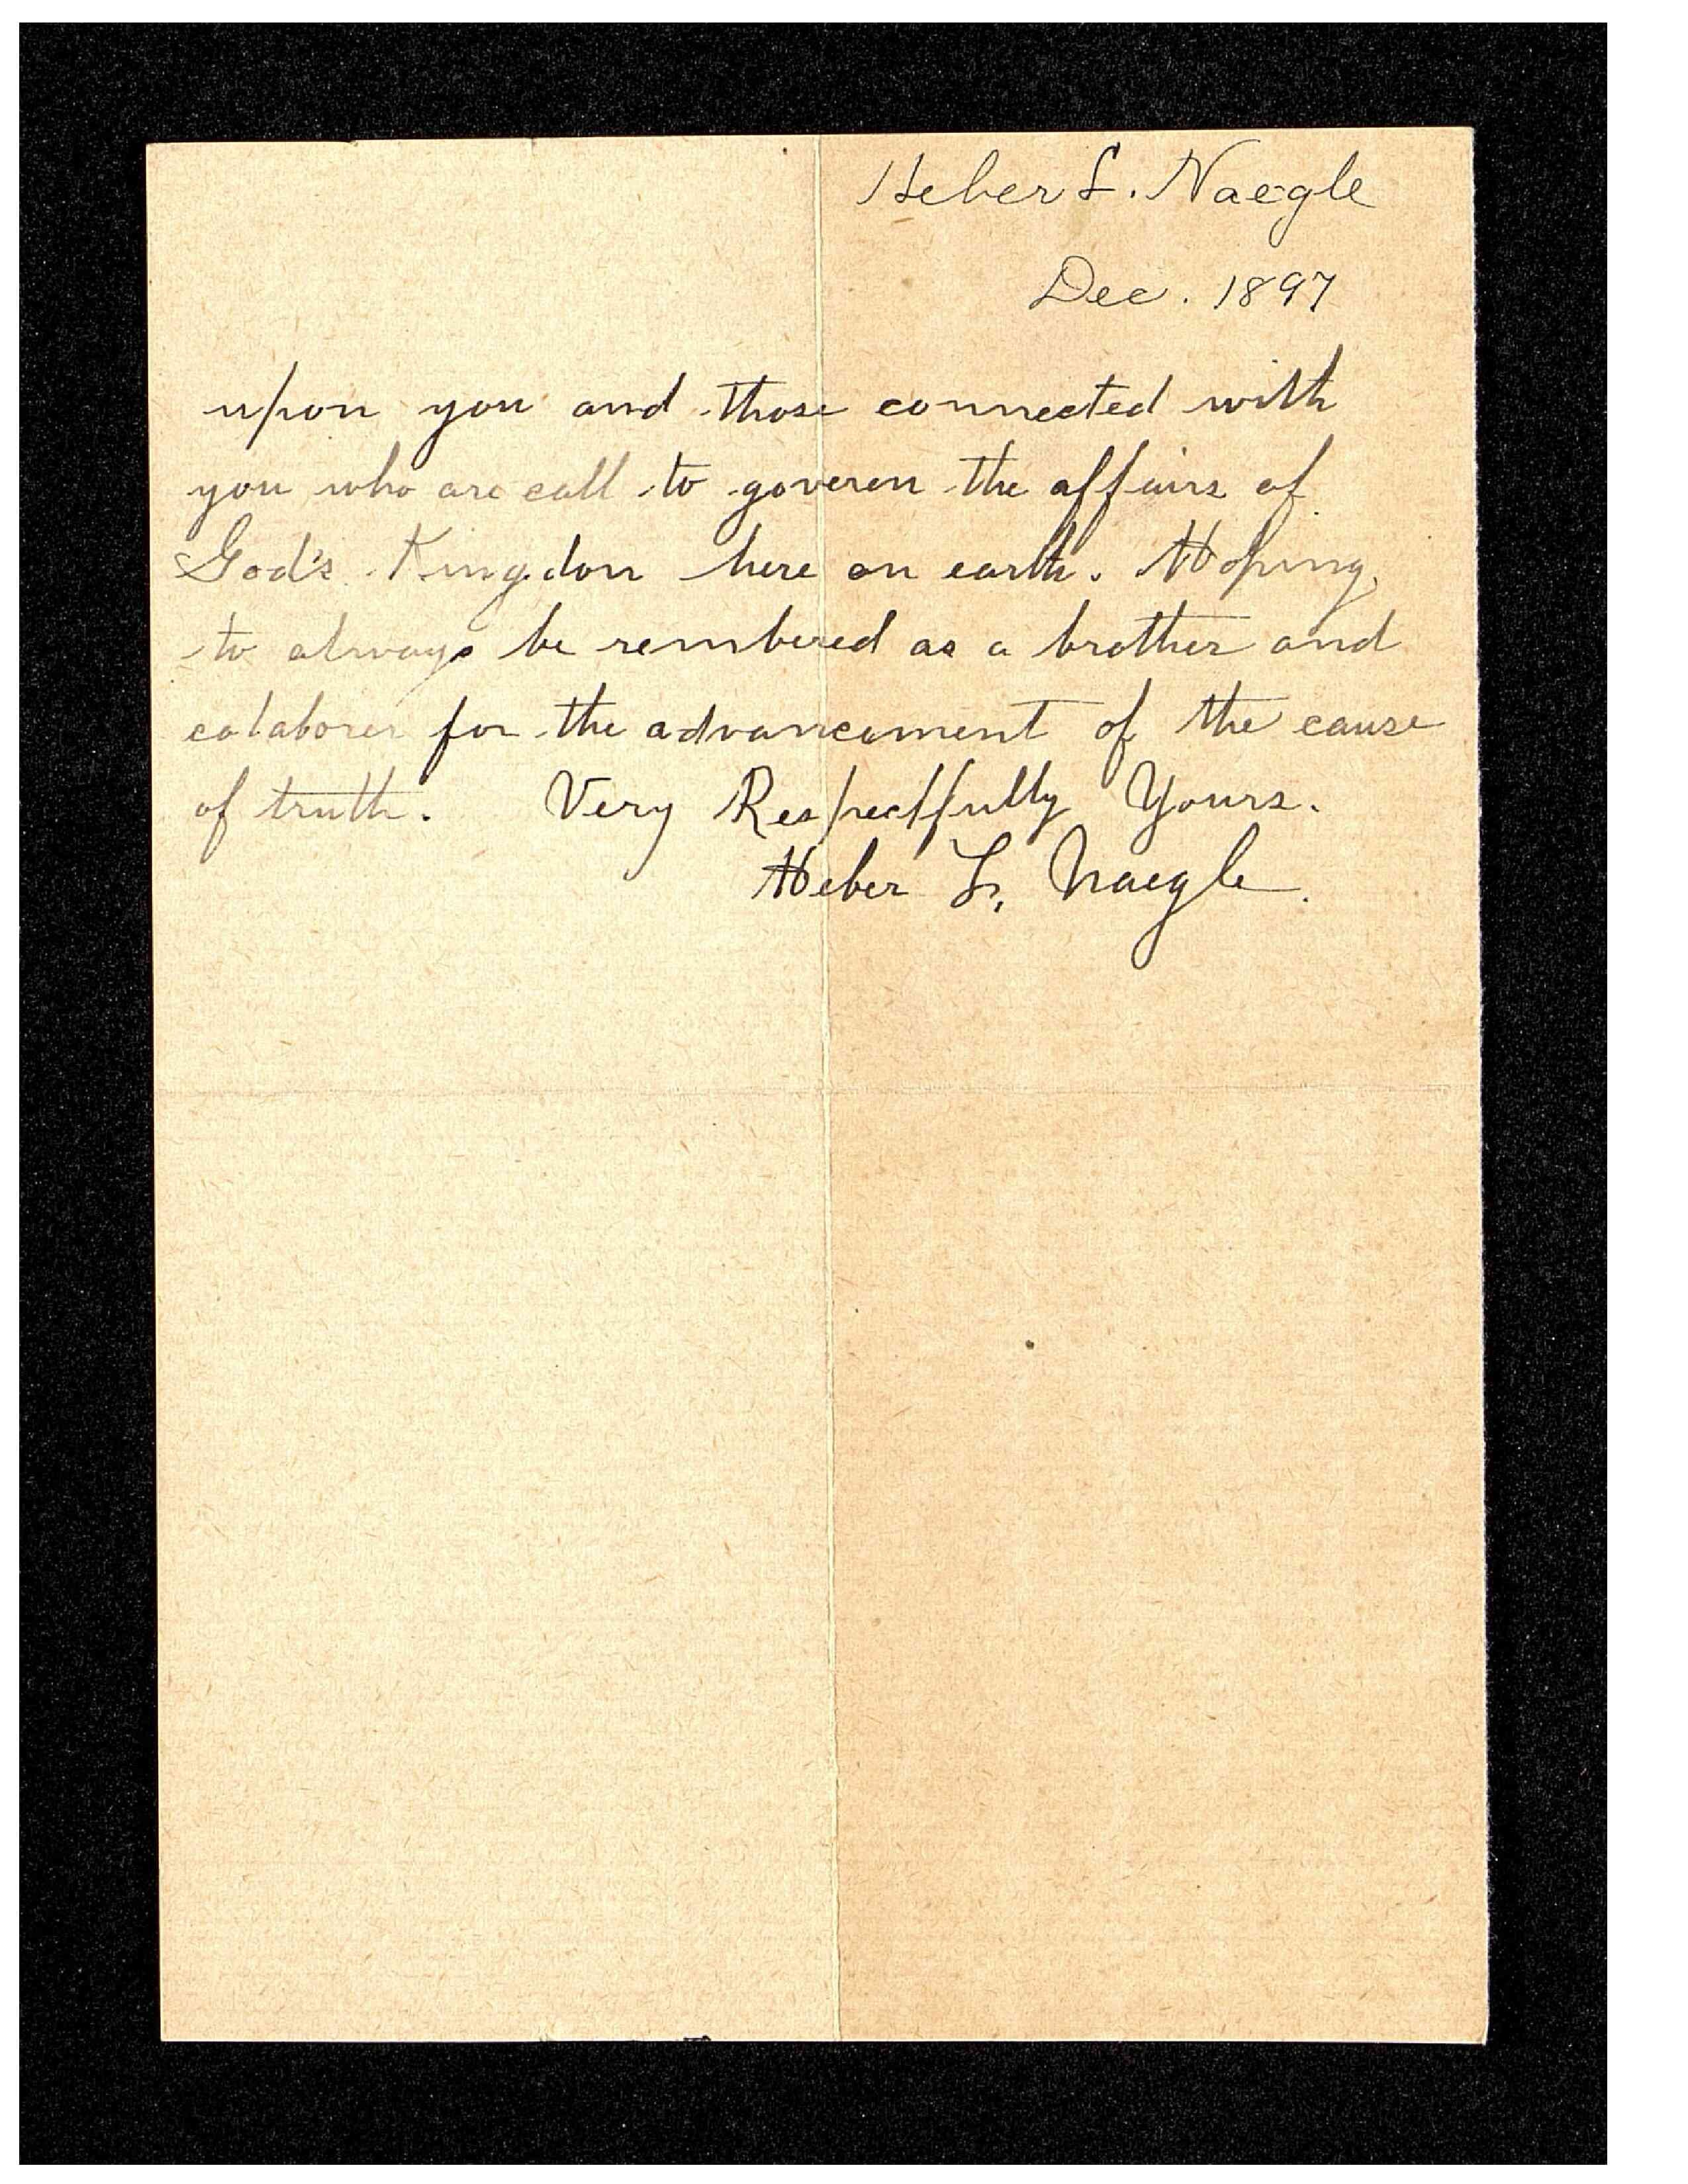 Heber L. Naegle
Dec. 1897
upon you and those connected with
you who are call to goveren the affairs of
God's Kingdon here on earth. Hoping
to always be rembered as a brother and
colaborer for the advancement of the cause
of truth. Very Respectfully Yours.
Heber L. Naegle.